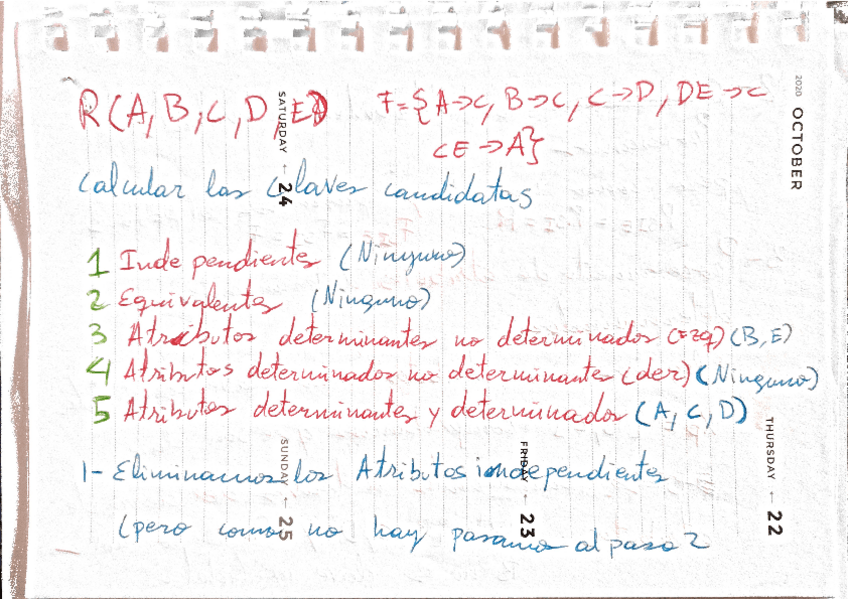 R(A, B, C, D, E) F={A→C, B→C, C→D, DE→C
CE→A}
Calcular las Claves candidatas
1 Independientes (Ninguno)
2 Equivalentes (Ninguno)
3 Atributos determinantes no determinados (Izq) (B, E)
4 Atributos determinados no determinantes (der) (Ninguno)
5 Atributos determinantes y determinados (A, C, D)
1- Eliminamos los Atributos independientes
(pero como no hay pasamos al paso 2
2020 OCTOBER
SATURDAY 24
SUNDAY 25
FRIDAY 23
THURSDAY 22